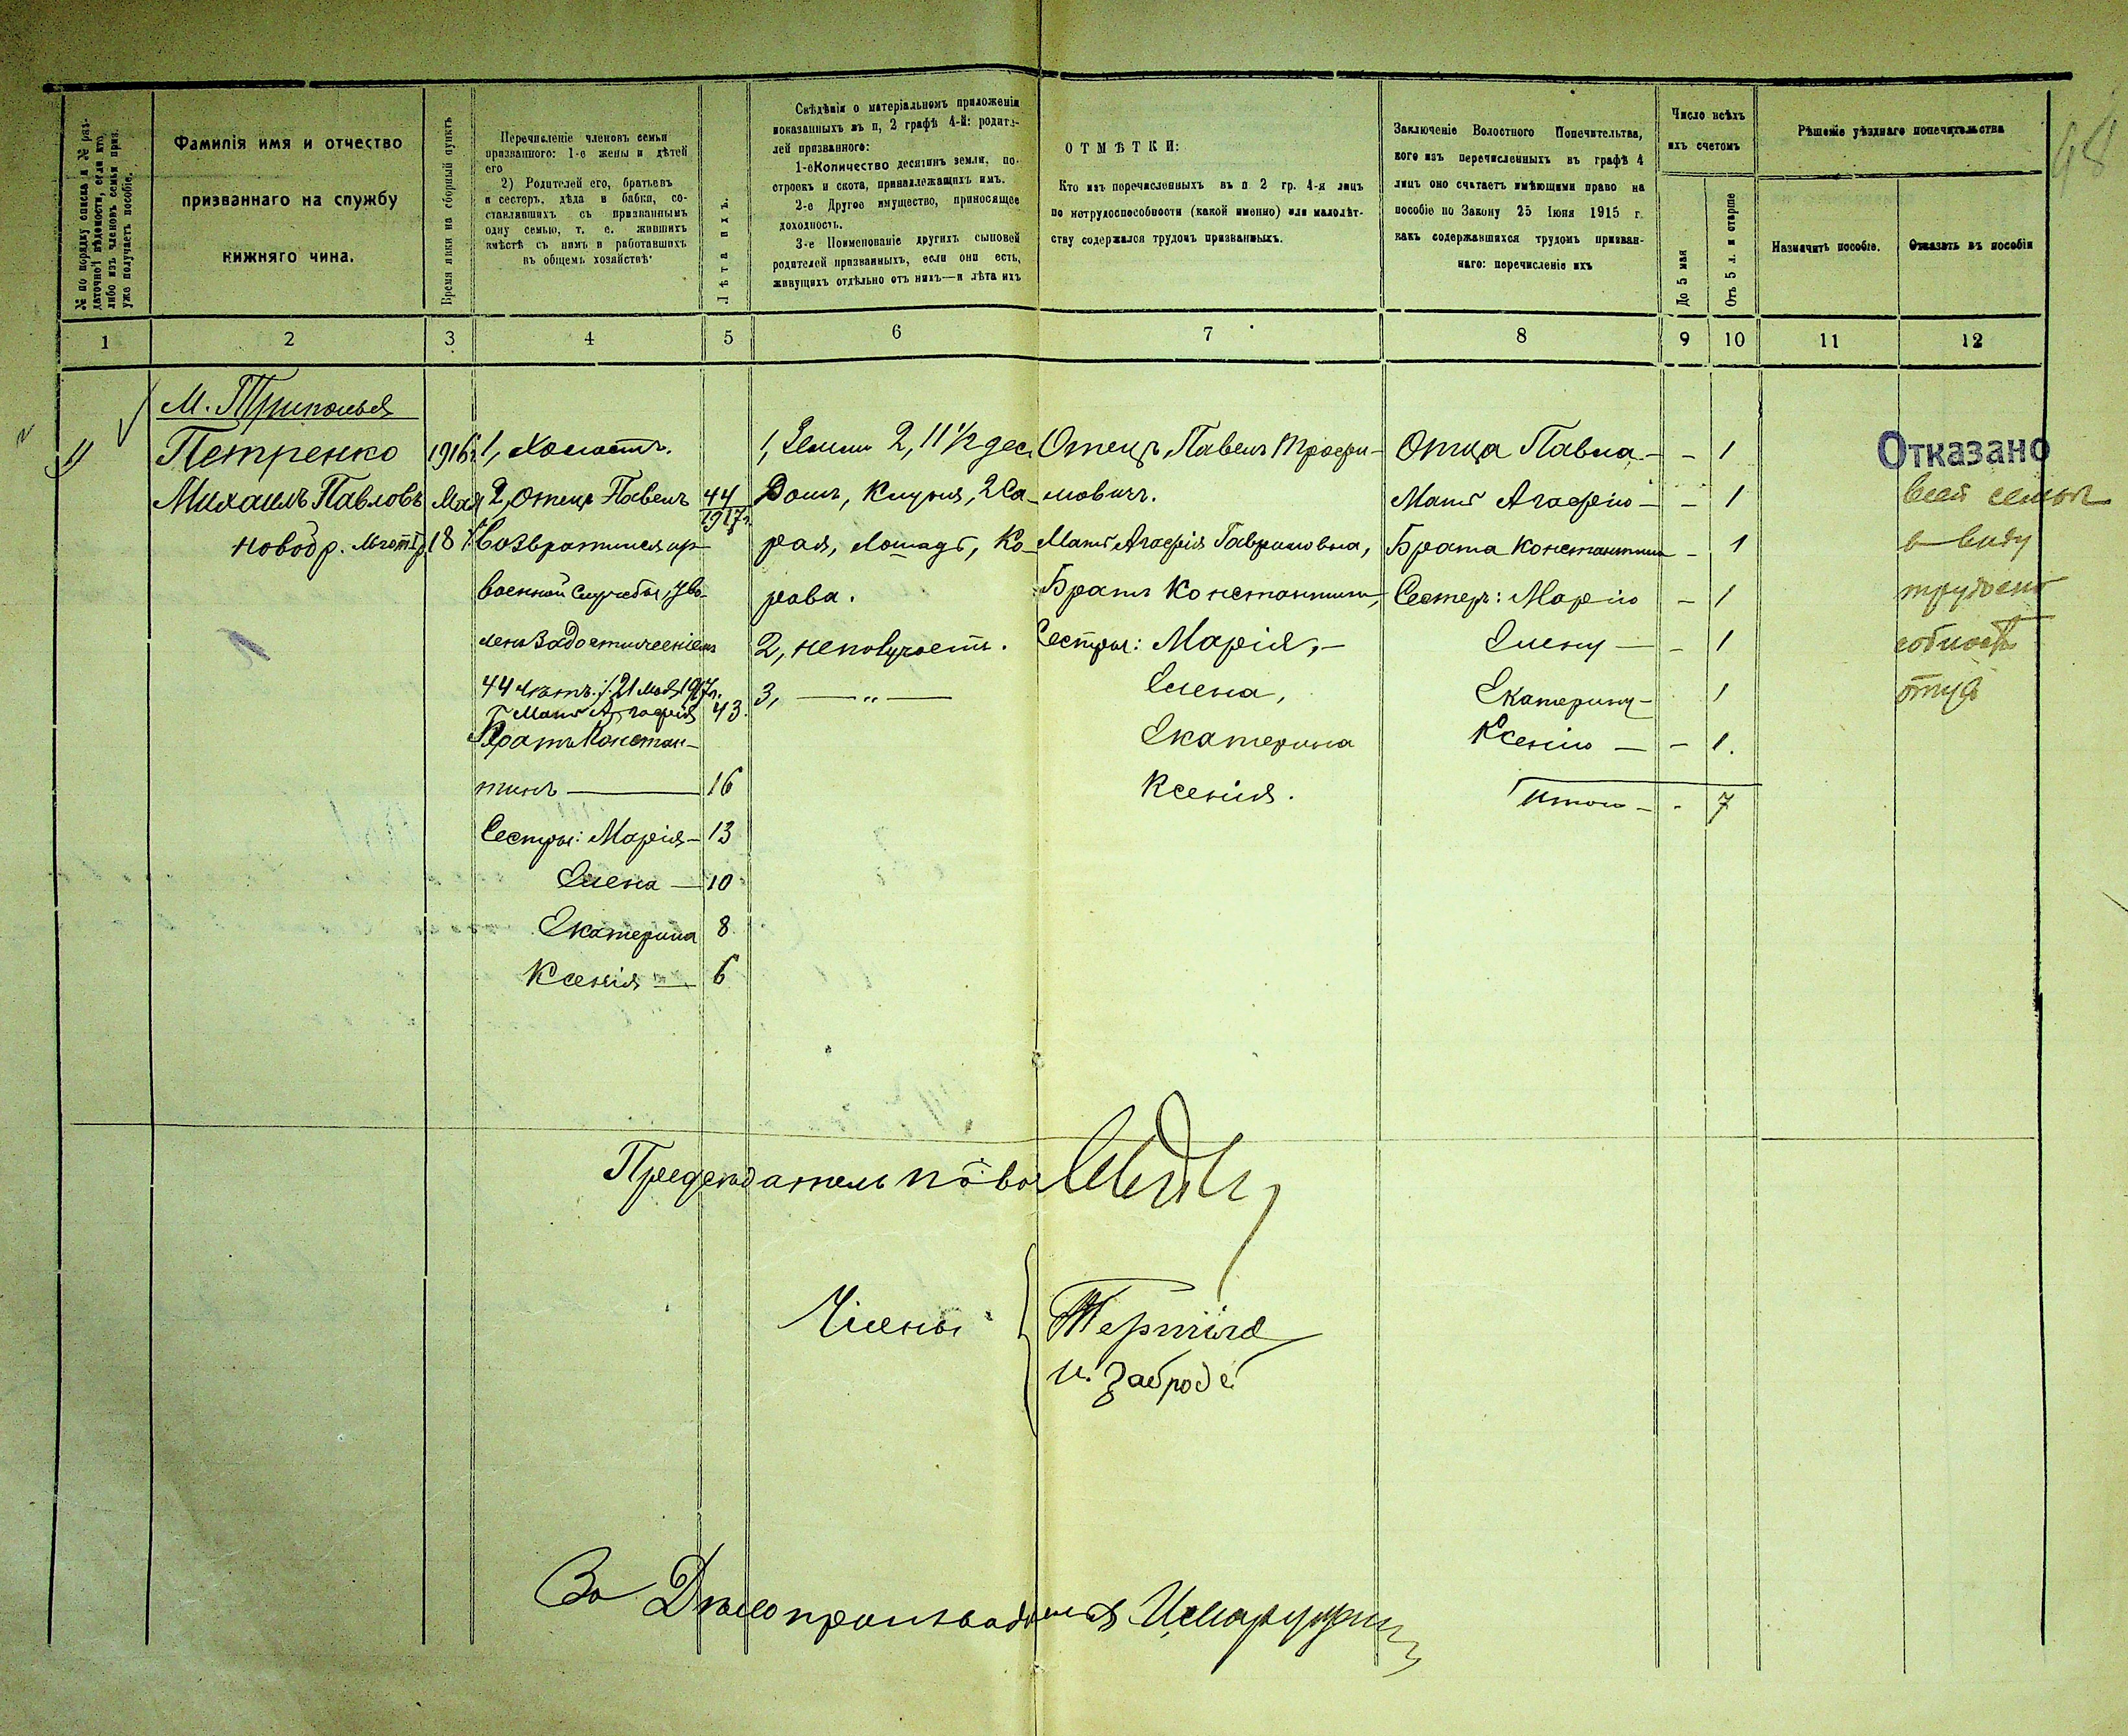 48
№ по порядку списка и № раз-
даточной вѣдомости, если кто
либо изъ членовъ семьи приз.
уже получаетъ пособіе.
Фамилія имя и отчество
призваннаго на службу
нижняго чина.
Время явки на сборный пунктъ
Перечисленіе членовъ семьи
призваннаго: 1-е жены и дѣтей
его
2) Родителей его, братьевъ
и сестеръ, дѣда и бабки, со-
ставлявшихъ съ призваннымъ
одну семью, т. е. жившихъ
вмѣстѣ съ нимъ и работавшихъ
въ общемъ хозяйствѣ
Лѣта ихъ.
Свѣдѣнія о матеріальномъ приложеніи
показанныхъ въ п, 2 графѣ 4-й: родите-
лей призваннаго:
1-е Количество десятинъ земли, по-
строекъ и скота, принадлежащихъ имъ.
2-е Другое имущество, приносящее
доходность.
3-е Поименованіе другихъ сыновей
родителей призванныхъ, если они есть,
живущихъ отдѣльно отъ нихъ—и лѣта ихъ
ОТМѢТКИ:
Кто изъ перечисленныхъ въ п 2 гр. 4-я лицъ
по нетрудоспособности (какой именно) или малолѣт-
ству содержался трудомъ призванныхъ.
Заключеніе Волостного Попечительтва,
кого изъ перечисленныхъ въ графѣ 4
лицъ оно считаетъ имѣющими право на
пособіе по Закону 25 Іюня 1915 г.
какъ содержавшихся трудомъ призван-
наго: перечисленіе ихъ
Число всѣхъ
ихъ счетомъ
До 5 мая
Отъ 5 л. и старше
Рѣшеніе уѣзднаго попечительства
Назначить пособіе.
Отказать въ пособіи
1 2 3 4 5 6 7 8 9 10 11 12
М. Триполья
Петренко
Михаилъ Павловъ
новобр.
1916г.
Мая
18
1, Холостъ.
2, Отецъ Павелъ 44
1917г.
Возвратился
военной службы, уво-
ленъ за достиженіемъ
44 21 Мая 1917г.
Мать Агафія 43.
Братъ Констан-
тинъ — 16
Сестры: Марія — 13
Елена — 10
Екатерина 8
Ксенія — 6
1, Земли 2, 11 1/2 дес.
Домъ, Клуня, 2 Са-
рая, Лошадь, Ко-
рова.
2, неполучаетъ.
3, — „ —
Отецъ, Павелъ Трофи-
мовичъ.
Мать Агафія Гавриловна,
Братъ Константинъ,
Сестры: Марія, —
Елена,
Екатерина
Ксенія.
Отца Павла — – 1
Мать Агафію — – 1
Брата Константина – 1
Сестеръ: Марію – 1
Елену — – 1
Екатерину — 1
Ксенію — – 1.
Итого – - 7
Отказано
всей семьѣ
в виду
трудоспо
собности
отца
Предсѣдатель
Члены
И. Заброде
За Дѣлопроизводителя